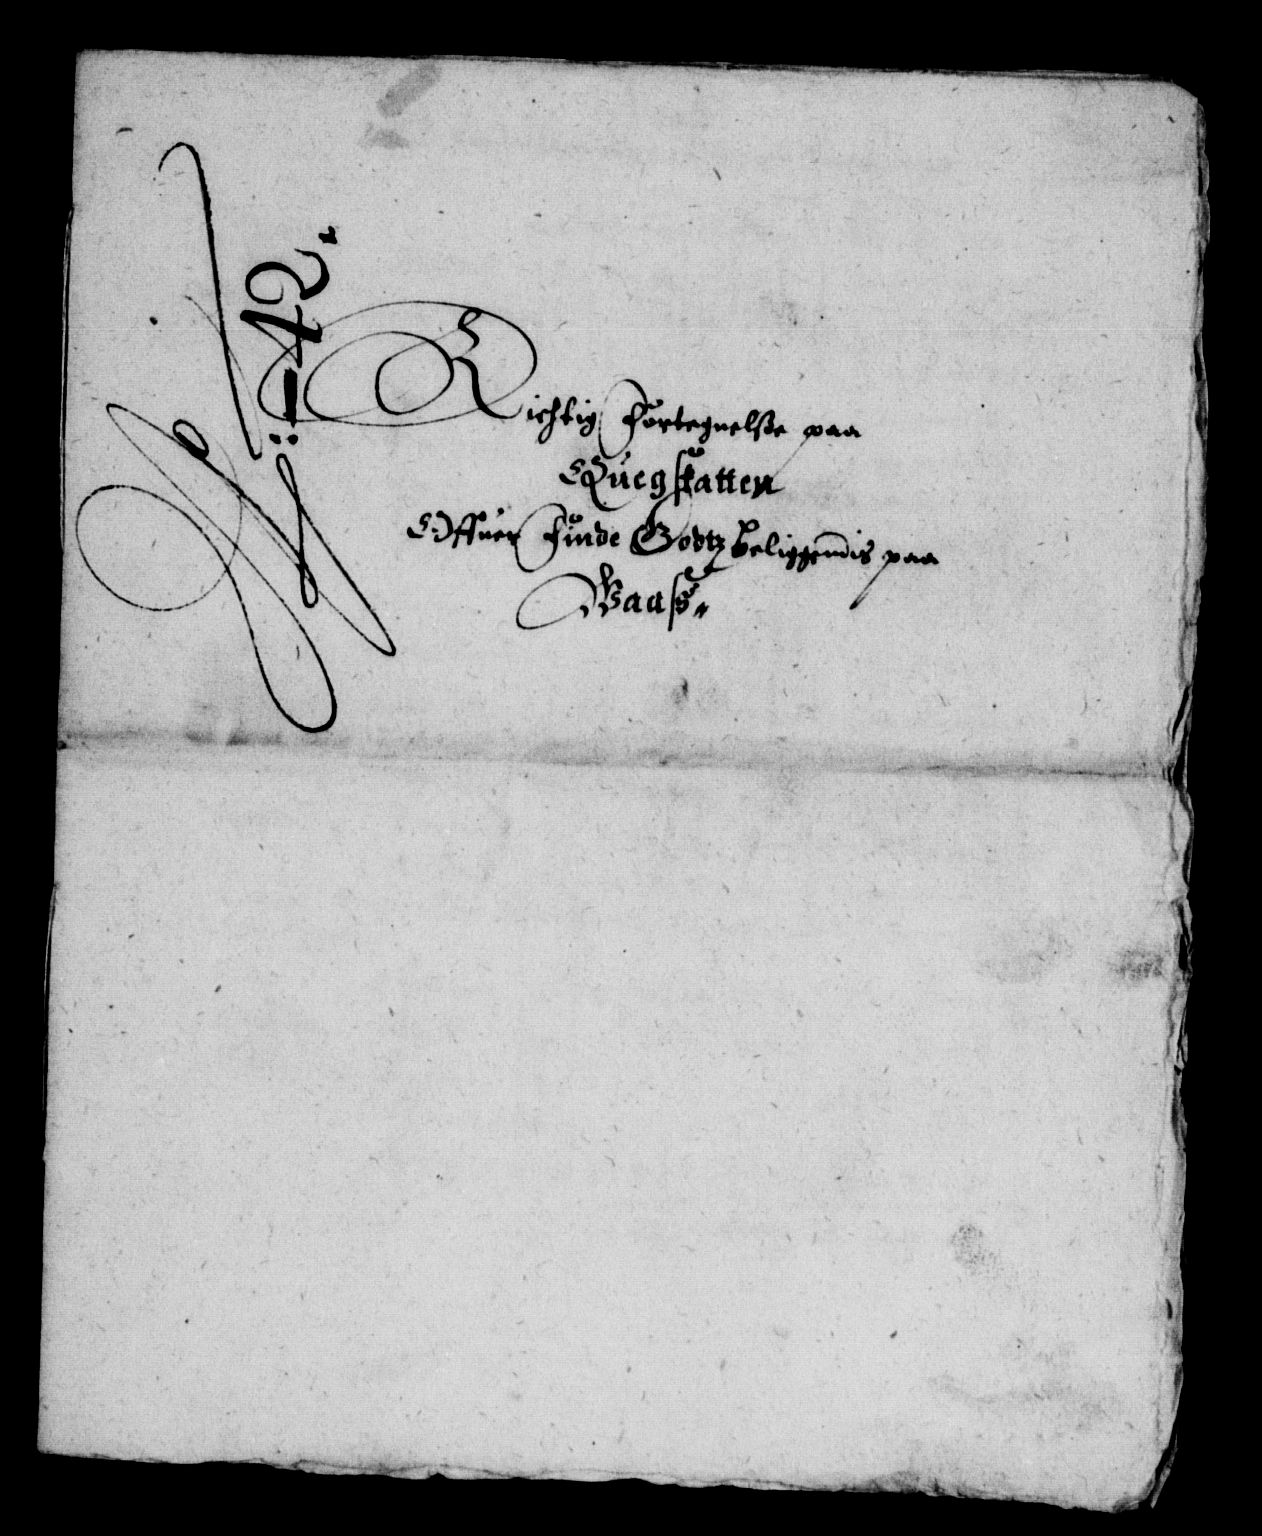 No: 42.
Richtig Fortegnelsse paa
Quegskatten
Offuer Finde Godtz beliggendis paa
Baagß.